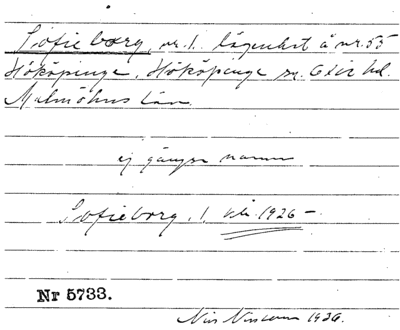 Sofieborg, nr. 1. lägenhet å nr. 55
Hököpinge, Hököpinge sn. Oxie hd.
Malmöhus län.
ej gängse namn
Sofieborg, 1. 1926 –
Nr 5733.
Nils 1926.